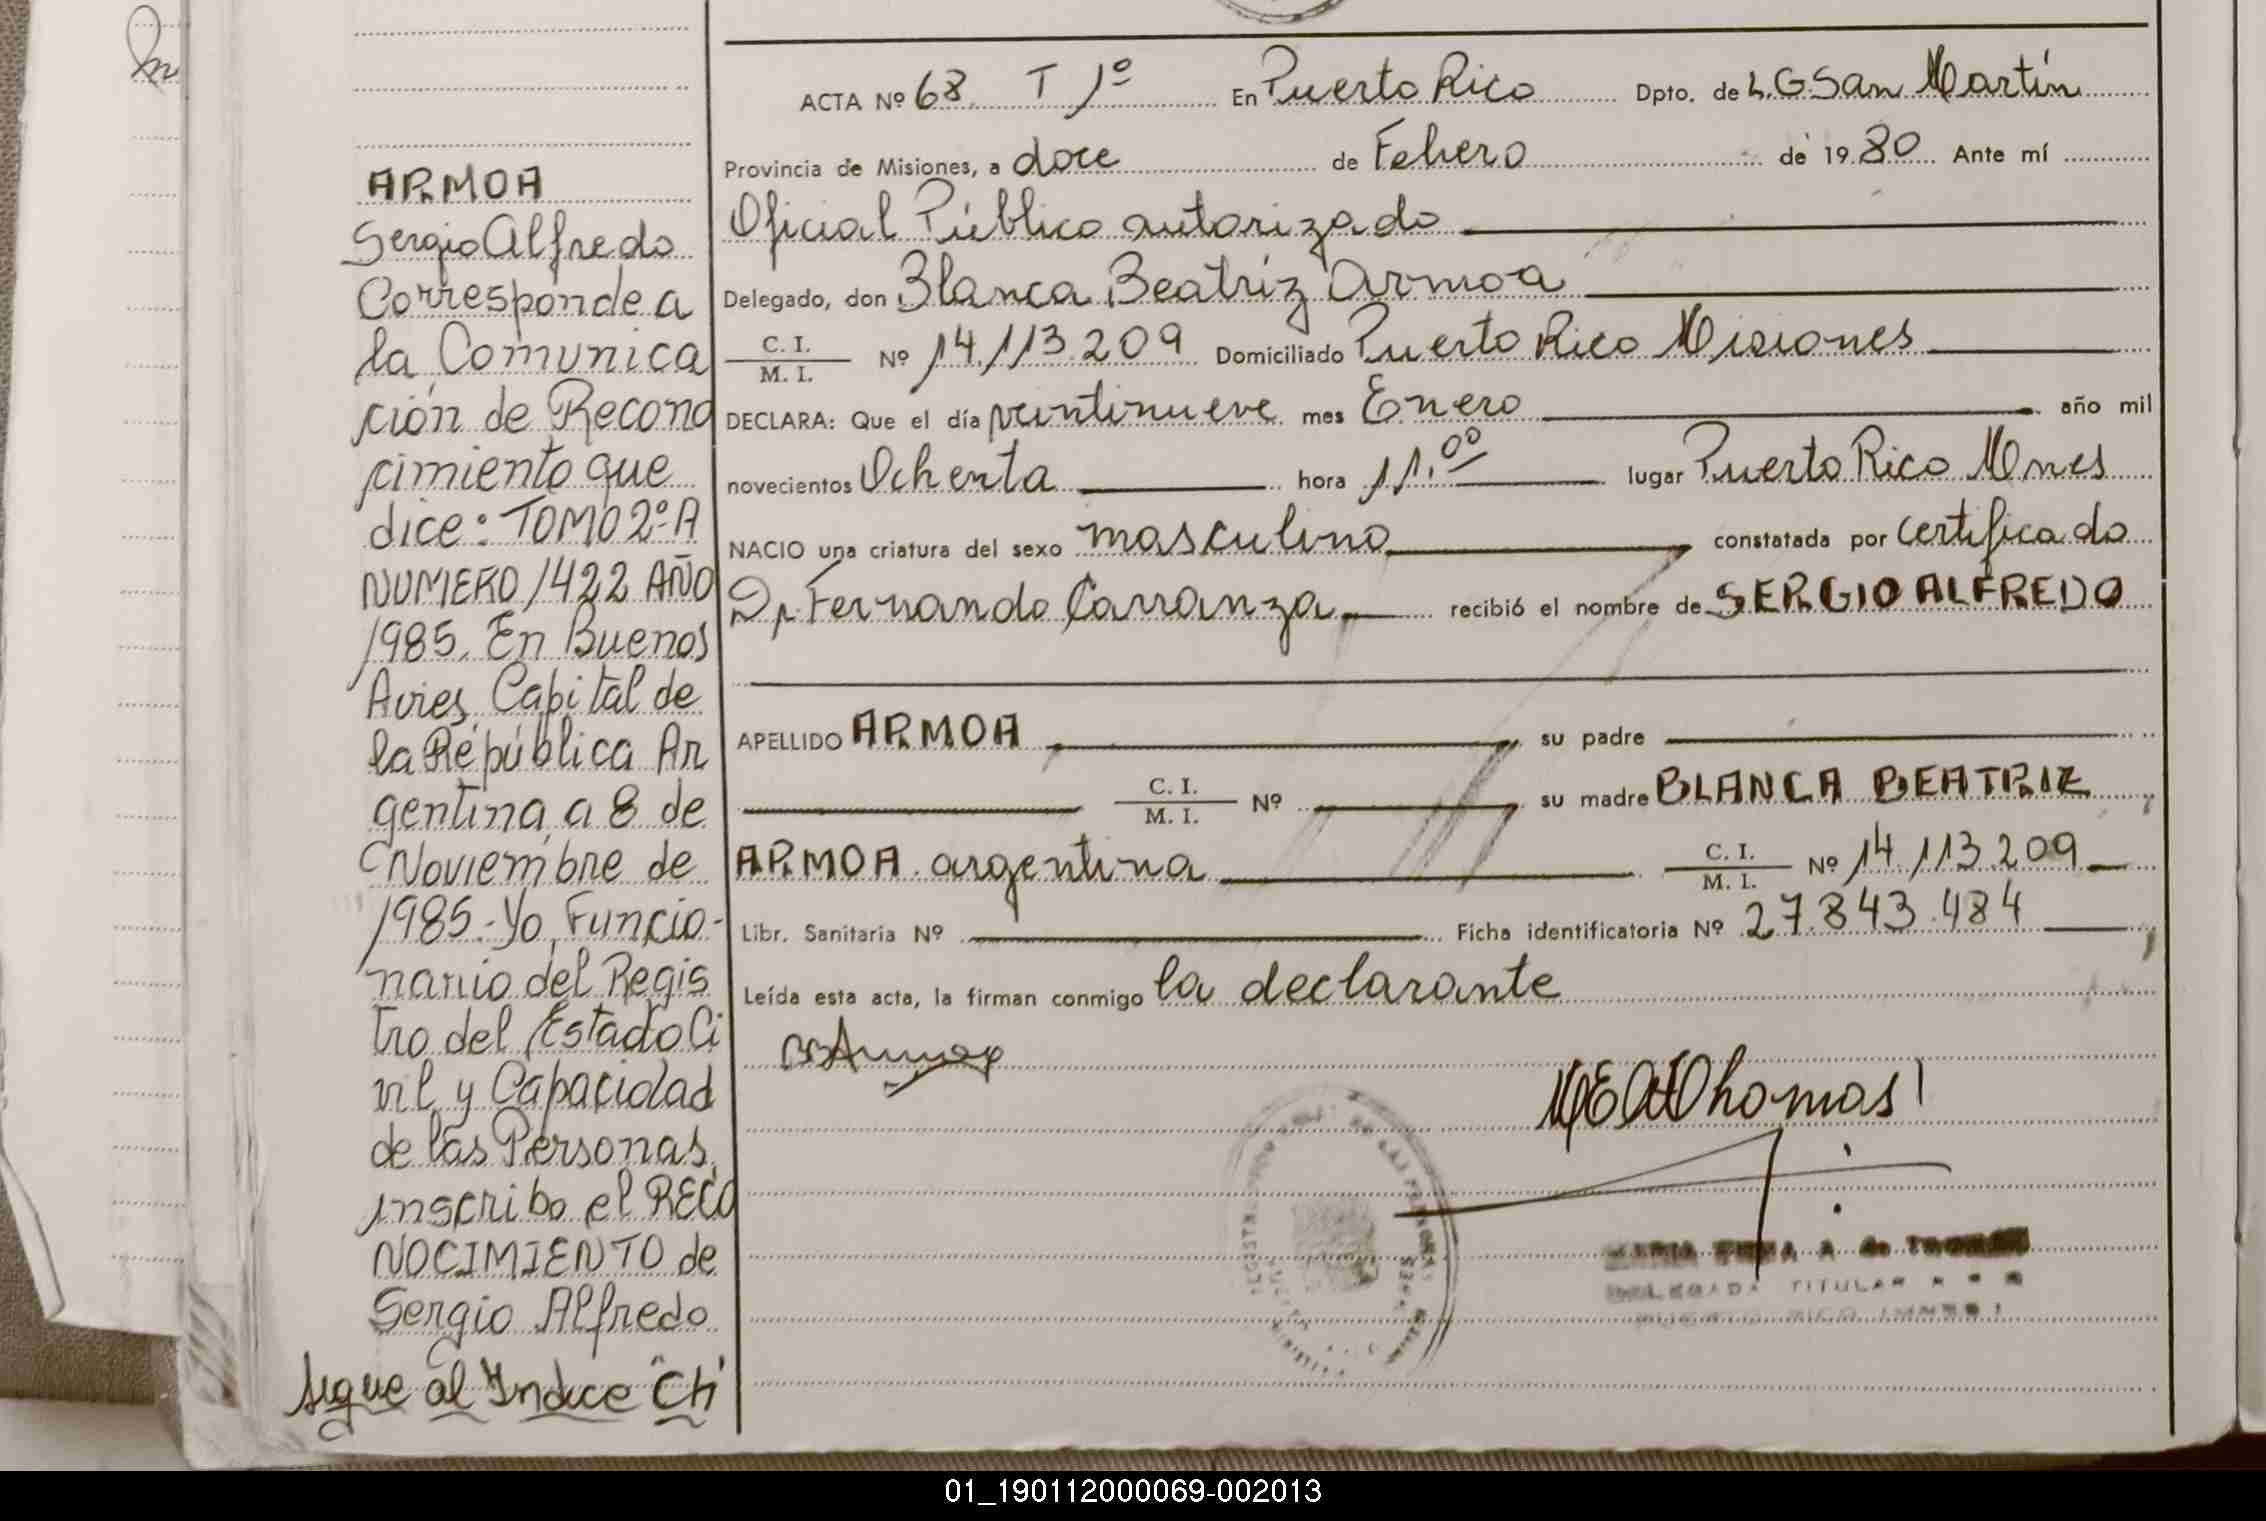 ARMOA
Sergio Alfredo
Corresponde a
la Comunica
ción de Recono
cimiento que
dice: TOMO 2º A
NUMERO 1422 AÑO
1985. En Buenos
Aires, Capital de
la República Ar
gentina, a 8 de
Noviembre de
1985.- Yo, Funcio-
nario del Regis
tro del Estado Ci
vil y Capacidad
de las Personas,
inscribo el RECO
NOCIMIENTO de
Sergio Alfredo
sigue al Indice "CH"
ACTA Nº 68 T 1º En Puerto Rico Dpto. de L.G San Martín
Provincia de Misiones, a doce de Febero de 1980 Ante mí
Oficial Público autorizado
Delegado, don Blanca Beatriz Armoa
C. I. / M. I. Nº 14.113.209 Domiciliado Puerto Rico Misiones
DECLARA: Que el día veintinueve mes Enero año mil
novecientos Ochenta hora 11.00 lugar Puerto Rico Mnes
NACIO una criatura del sexo masculino constatada por certificado
Dr Fernando Carranza recibió el nombre de SERGIO ALFREDO
APELLIDO ARMOA su padre
C. I. / M. I. Nº su madre BLANCA BEATRIZ
ARMOA argentina C. I. / M. I. Nº 14.113.209
Libr. Sanitaria Nº Ficha identificatoria Nº 27.843.484
Leída esta acta, la firman conmigo la declarante
BBArmoa
Thomas
DELEGADA TITULAR
PUERTO RICO (MNES)
01_190112000069-002013